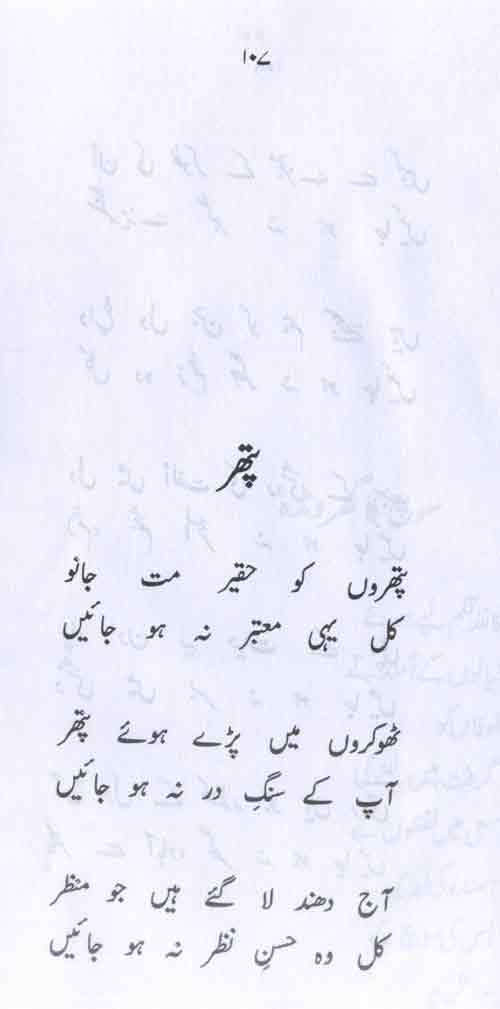 ۱۰۷
پتھر
پتھروں کو حقیر مت جانو
کل یہی معتبر نہ ہو جائیں
ٹھوکروں میں پڑے ہوئے پتھر
آپ کے سنگِ در نہ ہو جائیں
آج دھندلا گئے ہیں جو منظر
کل وہ حسنِ نظر نہ ہو جائیں